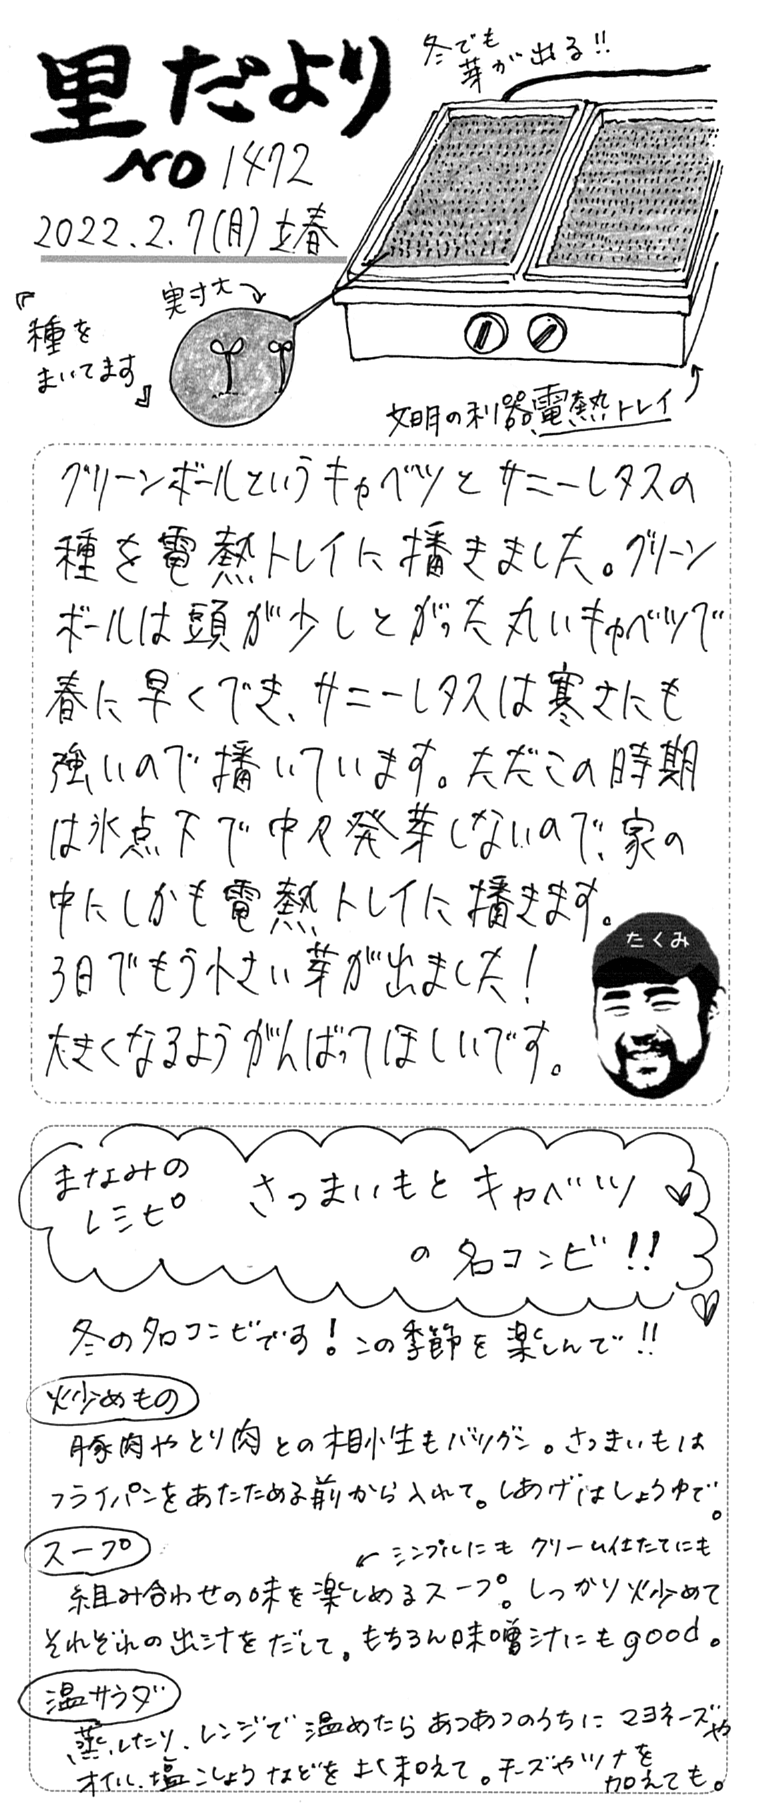 里だより
NO 1472
2022.2.7(月)立春
冬でも
芽が出る!!
実寸大
『種を
まいてます』
文明の利器電熱トレイ
グリーンボールというキャベツとサニーレタスの
種を電熱トレイに播きました。グリーン
ボールは頭が少しとがった丸いキャベツで
春に早くでき、サニーレタスは寒さにも
強いので播いています。ただこの時期
は氷点下で中々発芽しないので、家の
中にしかも電熱トレイに播きます。
3日でもう小さい芽が出ました!
大きくなるようがんばってほしいです。
たくみ
まなみの
レシピ
さつまいもとキャベツ
の名コンビ!!
冬の名コンビです!この季節を楽しんで!!
炒めもの
豚肉やとり肉との相性もバツグン。さつまいもは
フライパンをあたためる前から入れて。しあげはしょうゆで。
スープ
←シンプルにも クリーム仕たてにも
組み合わせの味を楽しめるスープ。しっかり炒めて
それぞれの出汁をだして。もちろん味噌汁にもgood。
温サラダ
蒸したり、レンジで温めたらあつあつのうちにマヨネーズや
オイル、塩こしょうなどをよく和えて。チーズやツナを
加えても。